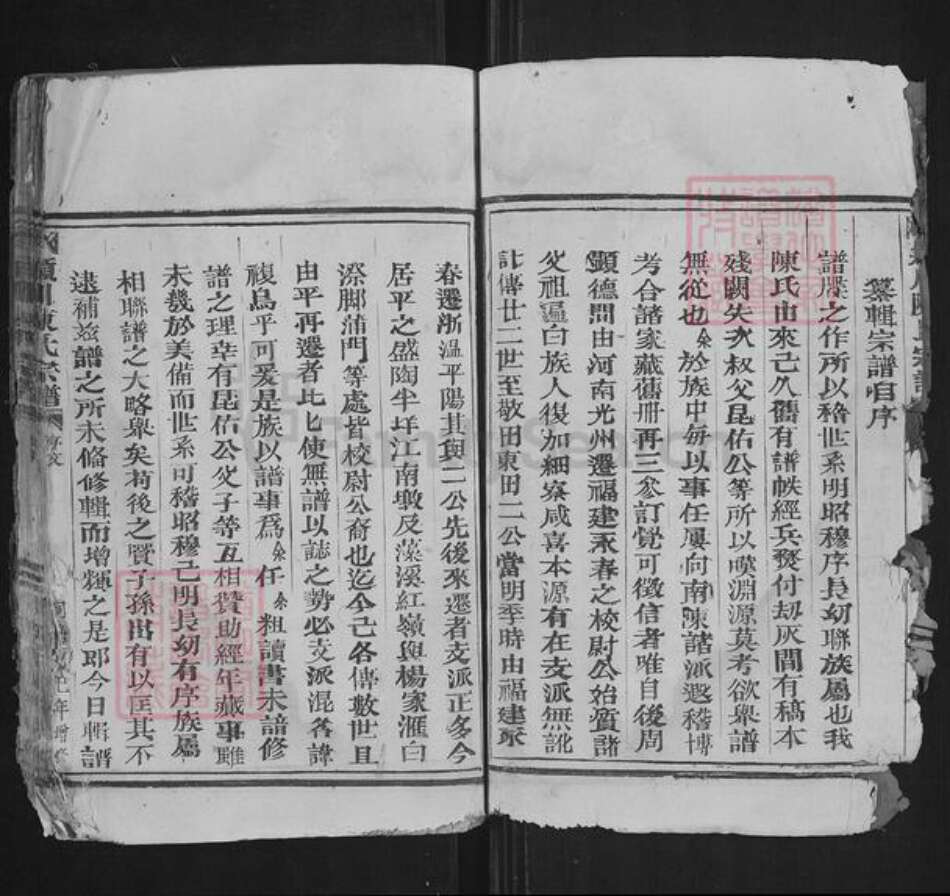 纂輯宗譜引序
譜牒之作所以稽世系明昭穆序長幼聯族屬也我
陳氏由來已久舊有譜帙經兵燹付劫灰間有稿本
殘闕失次叔父昆佑公等所以嘆淵源莫考欲舉譜
無從也余於族中每以事任屢向南陳諸派遐稽博
考合諸家藏舊冊再三叅訂覺可徵信者唯自後周
顕德間由河南光州遷福建永春之校尉公始質諸
父祖遍白族人復加細察咸喜本源有在支派無訛
計傳廿二世至敬田東田二公當明季時由福建永
春遷浙溫平陽其與二公先後來遷者支派正多今
居平之盛陶半垟江南墩及藻溪紅嶺與楊家滙白
深脚蒲門等處皆校尉公裔也迄今已各傳數世且
由平再遷者比比使無譜以誌之勢必支派混名諱
複烏乎可爰是族以譜事為余任余粗讀書未諳修
譜之理幸有昆佑公父子等互相贊助經年蕆事雖
未幾於美備而世系可稽昭穆已明長幼有序族屬
相聯譜之大略舉矣苟後之賢子孫出有以匡其不
逮補茲譜之所未備修輯而增輝之是耶今日輯譜
潁川陳氏宗譜